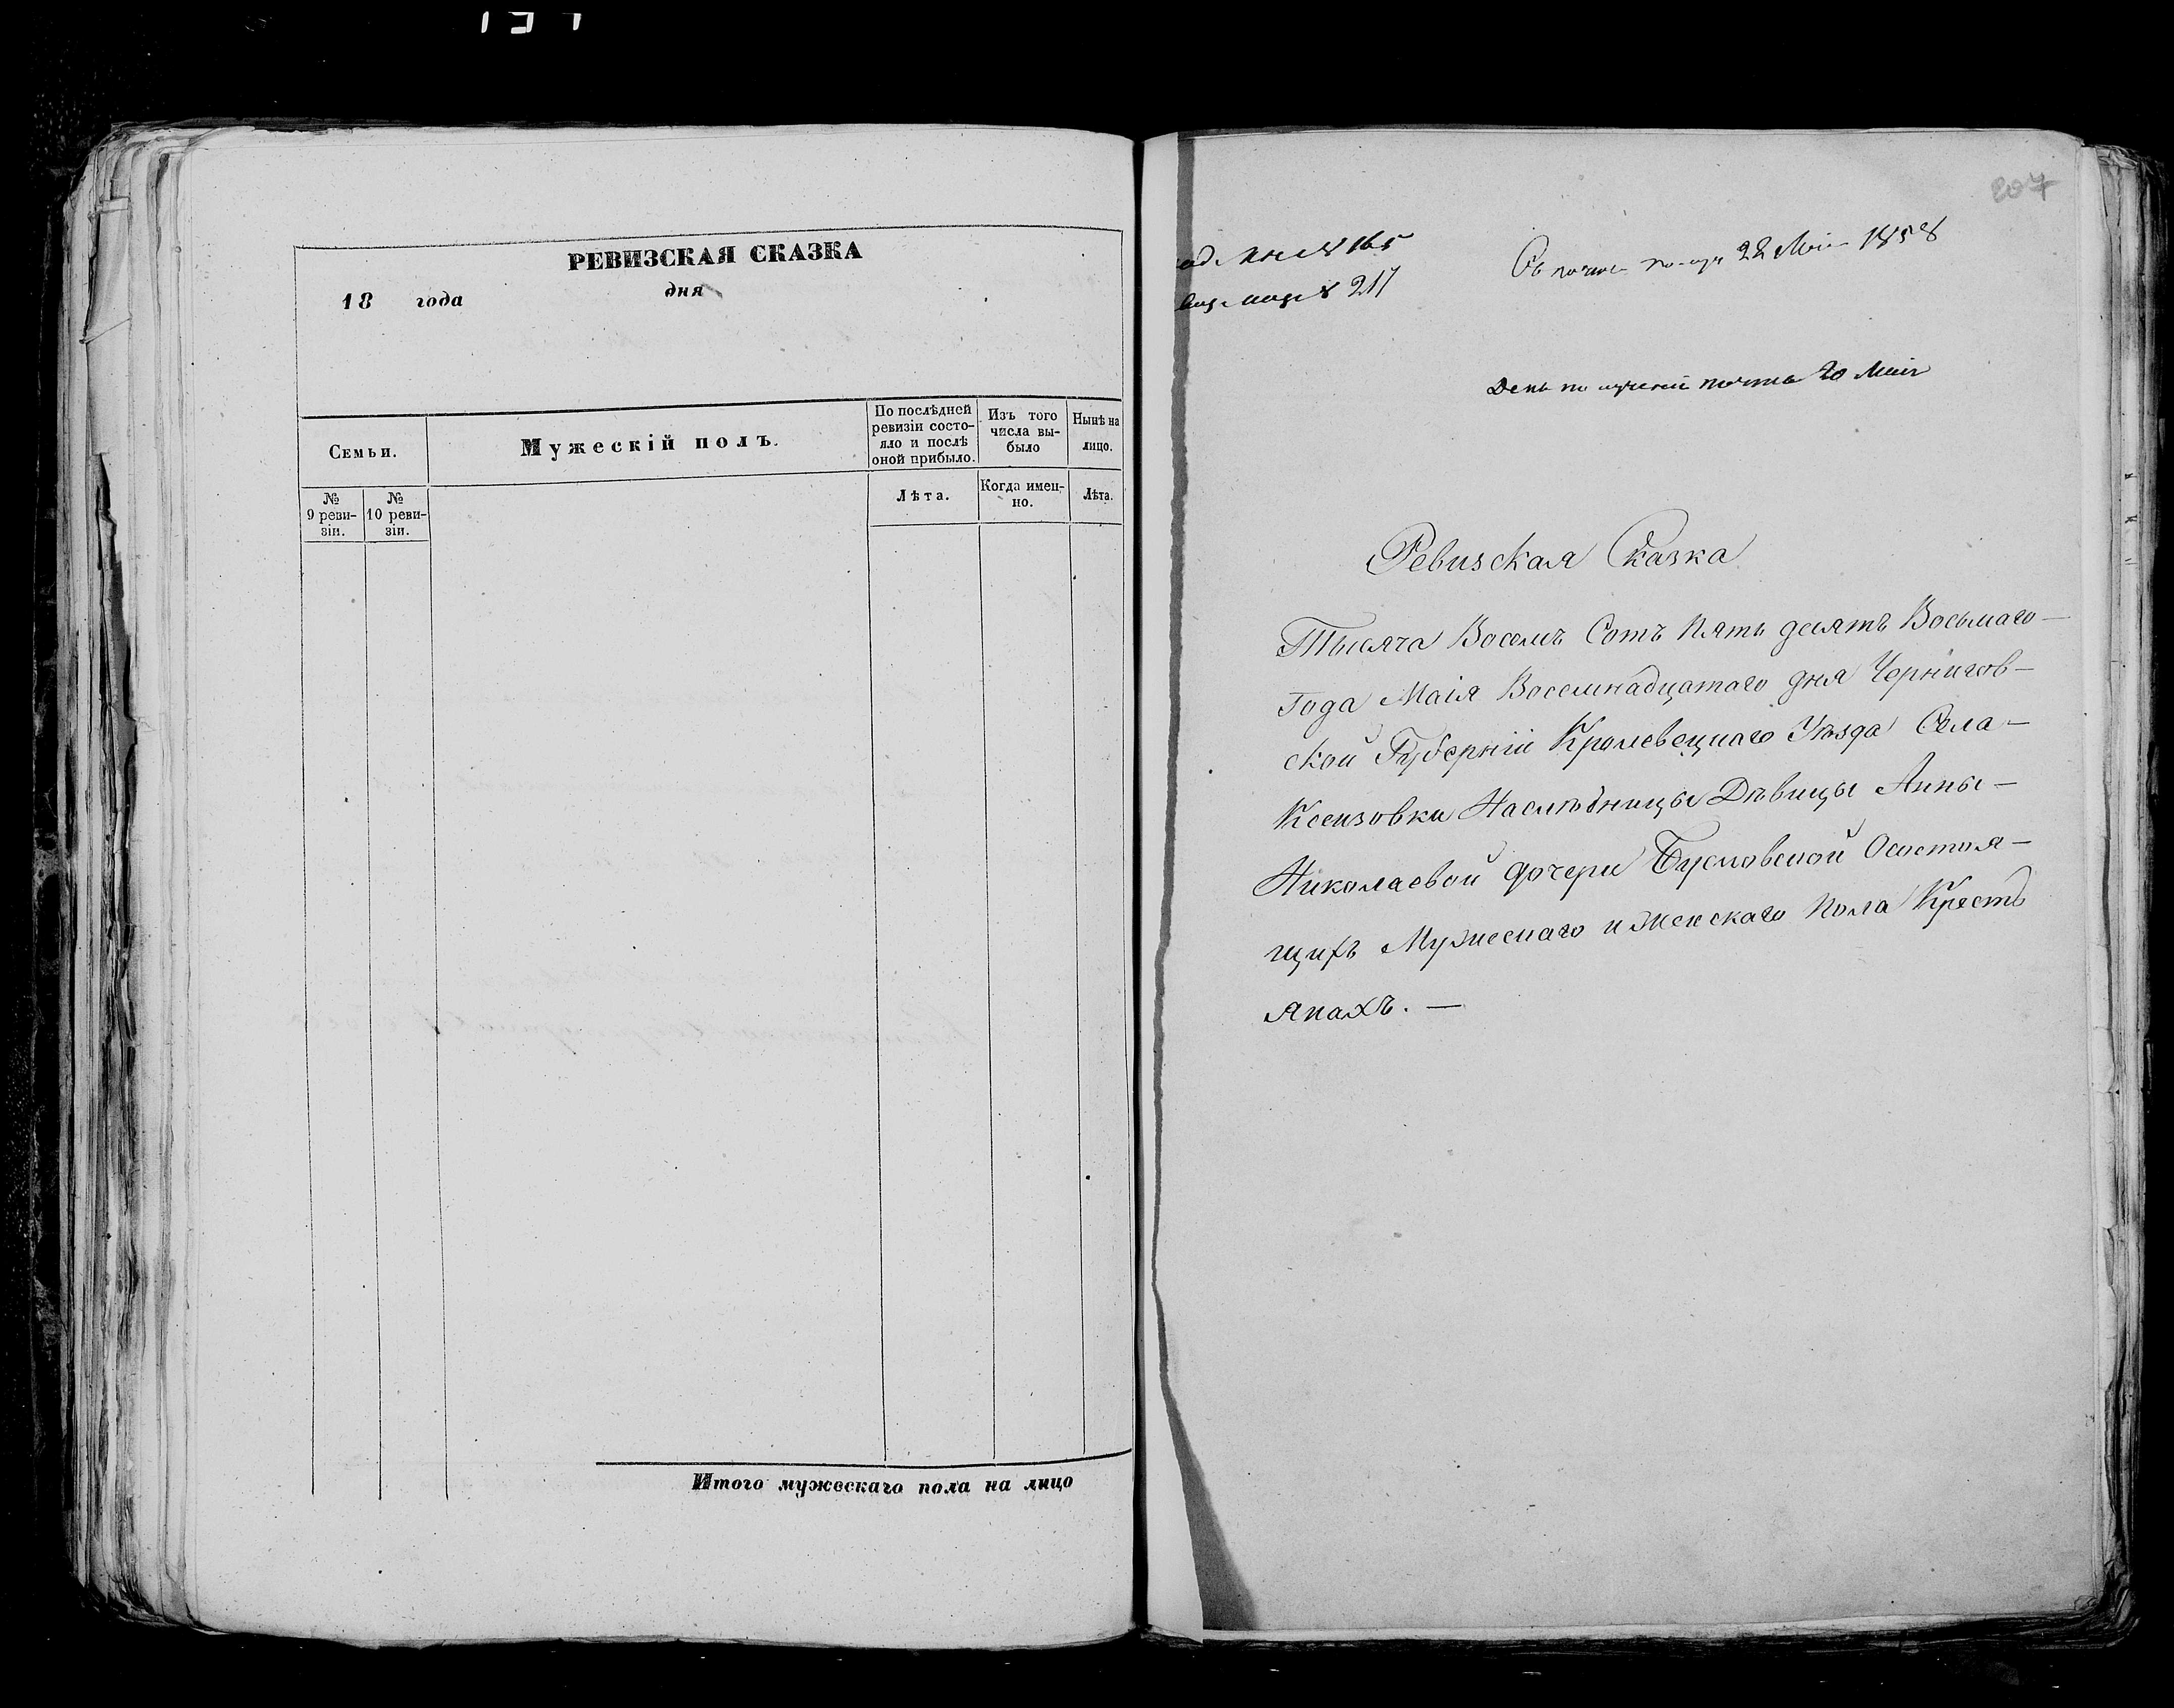 РЕВИЗСКАЯ СКАЗКА
18 года дня
Семьи.
Мужескій полъ.
По послѣдней ревизіи состо-
яло и послѣ
оной прибыло.
Изъ того
числа вы-
было
Нынѣ на
лицо.
№
9 реви-
зіи.
№
10 реви-
зіи.
Лѣта.
Когда имен-
но.
Лѣта.
Итого мужескаго пола на лицо
207
№ 165
№ 217
22 Маія 1858
День полученія 20 Маія
Ревизская Сказка
Тысяча Восемъ Сотъ Пять десятъ Восьмаго —
Года Маія Восемнадцатаго дня Чернигов —
ской Губерніи Кролевецкаго Уѣзда Села —
Ксензовки Наслѣдницы Дѣвицы Анны —
Николаевой дочери Бусловской Осостоя —
щихъ Мужескаго и женскаго Пола Кресть
янахъ. —